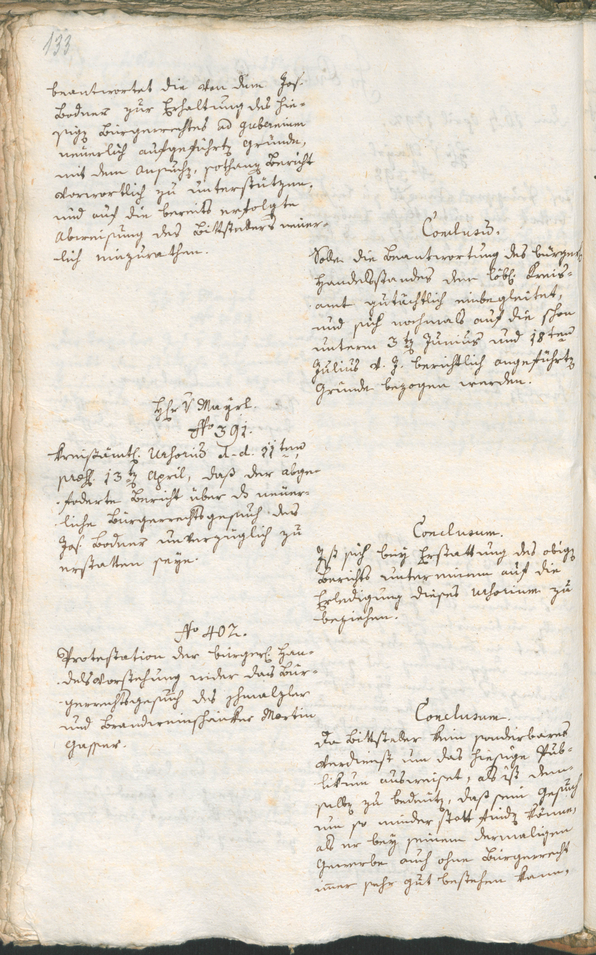 133
beantwortet die von dem Jos.
Bodner zur Erhaltung des hie-
sigen Bürgerrechtes ad Gubernium
neuerlich aufgeführte Gründe,
mit dem Ansuchen, sothanen Bericht
vorwortlich zu unterstützen,
und auf die bereits erfolgte
Abweisung des Bittstellers neuer-
lich einzurathen.
Conclusum.
Solle die Beantwortung des bürgerl.
Handelsstandes dem löbl. Kreis-
amt gutächtlich einbegleitet,
und sich nochmals auf die schon
unterm 3ten Junius und 18ten
Julius v. J. berichtlich angeführte
Gründe bezogen werden.
Hr. v Mayrl.
No 391.
Kreisämtl. Urhorium d. d. 11ten
præs. 13ten April, daß der abge-
foderte Bericht über das neuer-
liche Bürgerrechtsgesuch des
Jos. Bodner unverzüglich zu
erstatten seye.
Conclusum.
Ist sich bey Erstattung des obigen
Berichts unter einem auf die
Erledigung dieses Urhorium zu
beziehen.
No 402.
Protestation der bürgerl. Han-
delsvorstehung wider das Bür-
gerrechtsgesuch des Schmalzler
und Brandweinschänker Martin
Gasser.
Conclusum.
Da Bittsteller kein sonderbares
Verdienst um das hiesige Pub-
likum ausweiset, als ist dem-
selben zu bedeuten, daß sein Gesuch
um so minder statt finden könne,
als er bey seinem dermaligen
Gewerbe auch ohne Bürgerrecht
immer sehr gut bestehen kann,